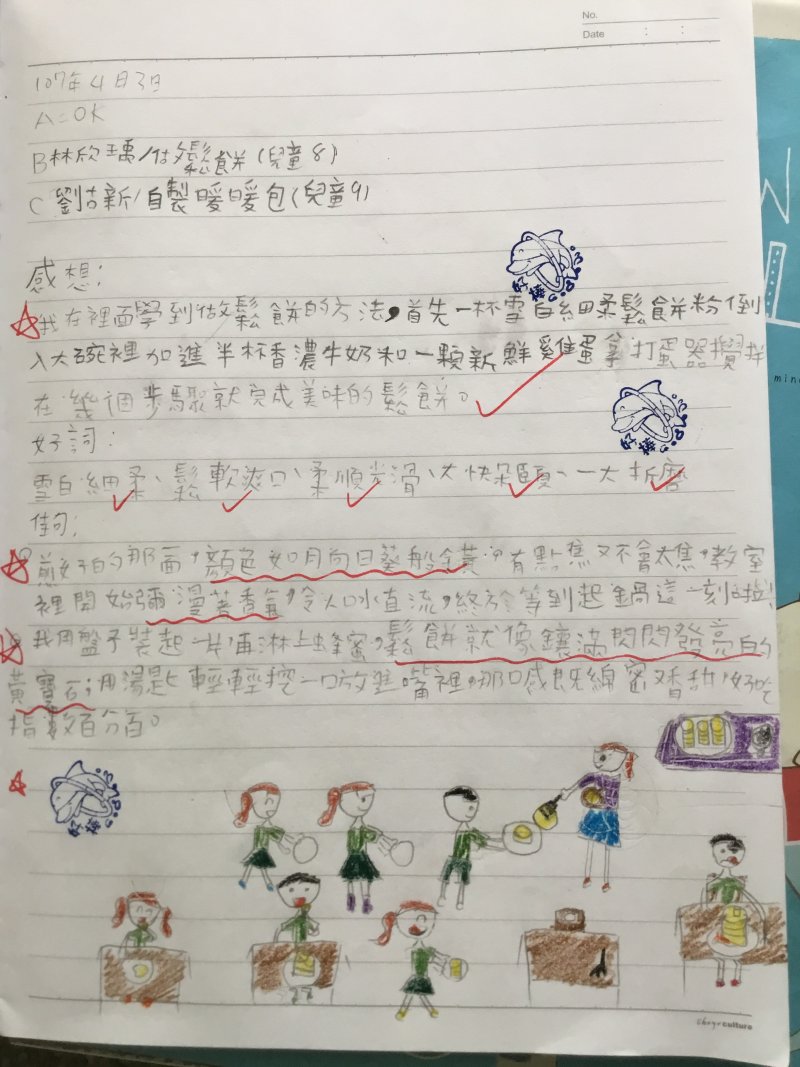 No.
Date : :
107年4月3日
A=OK
B林欣瑀/做鬆餅(兒童8)
C 劉古新/自製暖暖包(兒童9)
感想:
我在裡面學到做鬆餅的方法,首先一杯雪白細柔鬆餅粉倒
入大碗裡加進半杯香濃牛奶和一顆新鮮雞蛋拿打蛋器攪拌
在幾個步驟就完成美味的鬆餅。
好詞:
雪白細柔、鬆軟爽口、柔順光滑、大快朵頤、一大折磨
佳句:
煎好的那面,顏色如月向日葵般金黃,有點焦又不會太焦,教室
裡開始彌漫著香氣,令人口水直流,終於等到起鍋這一刻啦!
我用盤子裝起一片再淋上蜂蜜,鬆餅就像鑲滿閃閃發亮的
黃寶石;用湯匙輕輕挖一口放進嘴裡,那口感既綿密又香甜,好吃
指數百分百。
好棒
好棒
好棒
culture
min